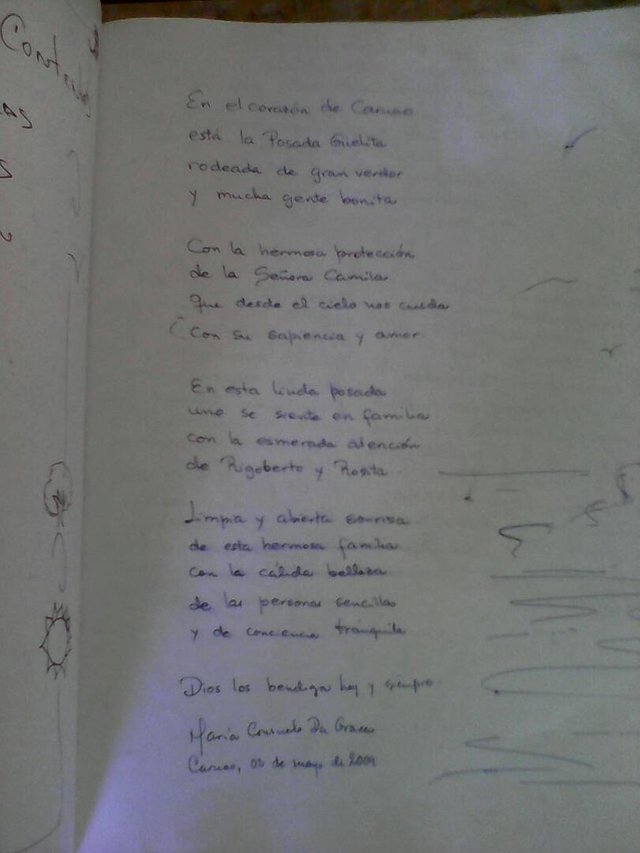 En el corazón de Caruao
está la Posada Güelita
rodeada de gran verdor
y mucha gente bonita
Con la hermosa protección
de la Señora Camila
que desde el cielo nos cuida
Con su sapiencia y amor
En esta linda posada
uno se siente en familia
con la esmerada atención
de Rigoberto y Rosita
Limpia y abierta sonrisa
de esta hermosa familia
con la cálida belleza
de las personas sencillas
y de conciencia tranquila
Dios los bendiga hoy y siempre
María Consuelo Da
Caruao, 02 de mayo de 2009